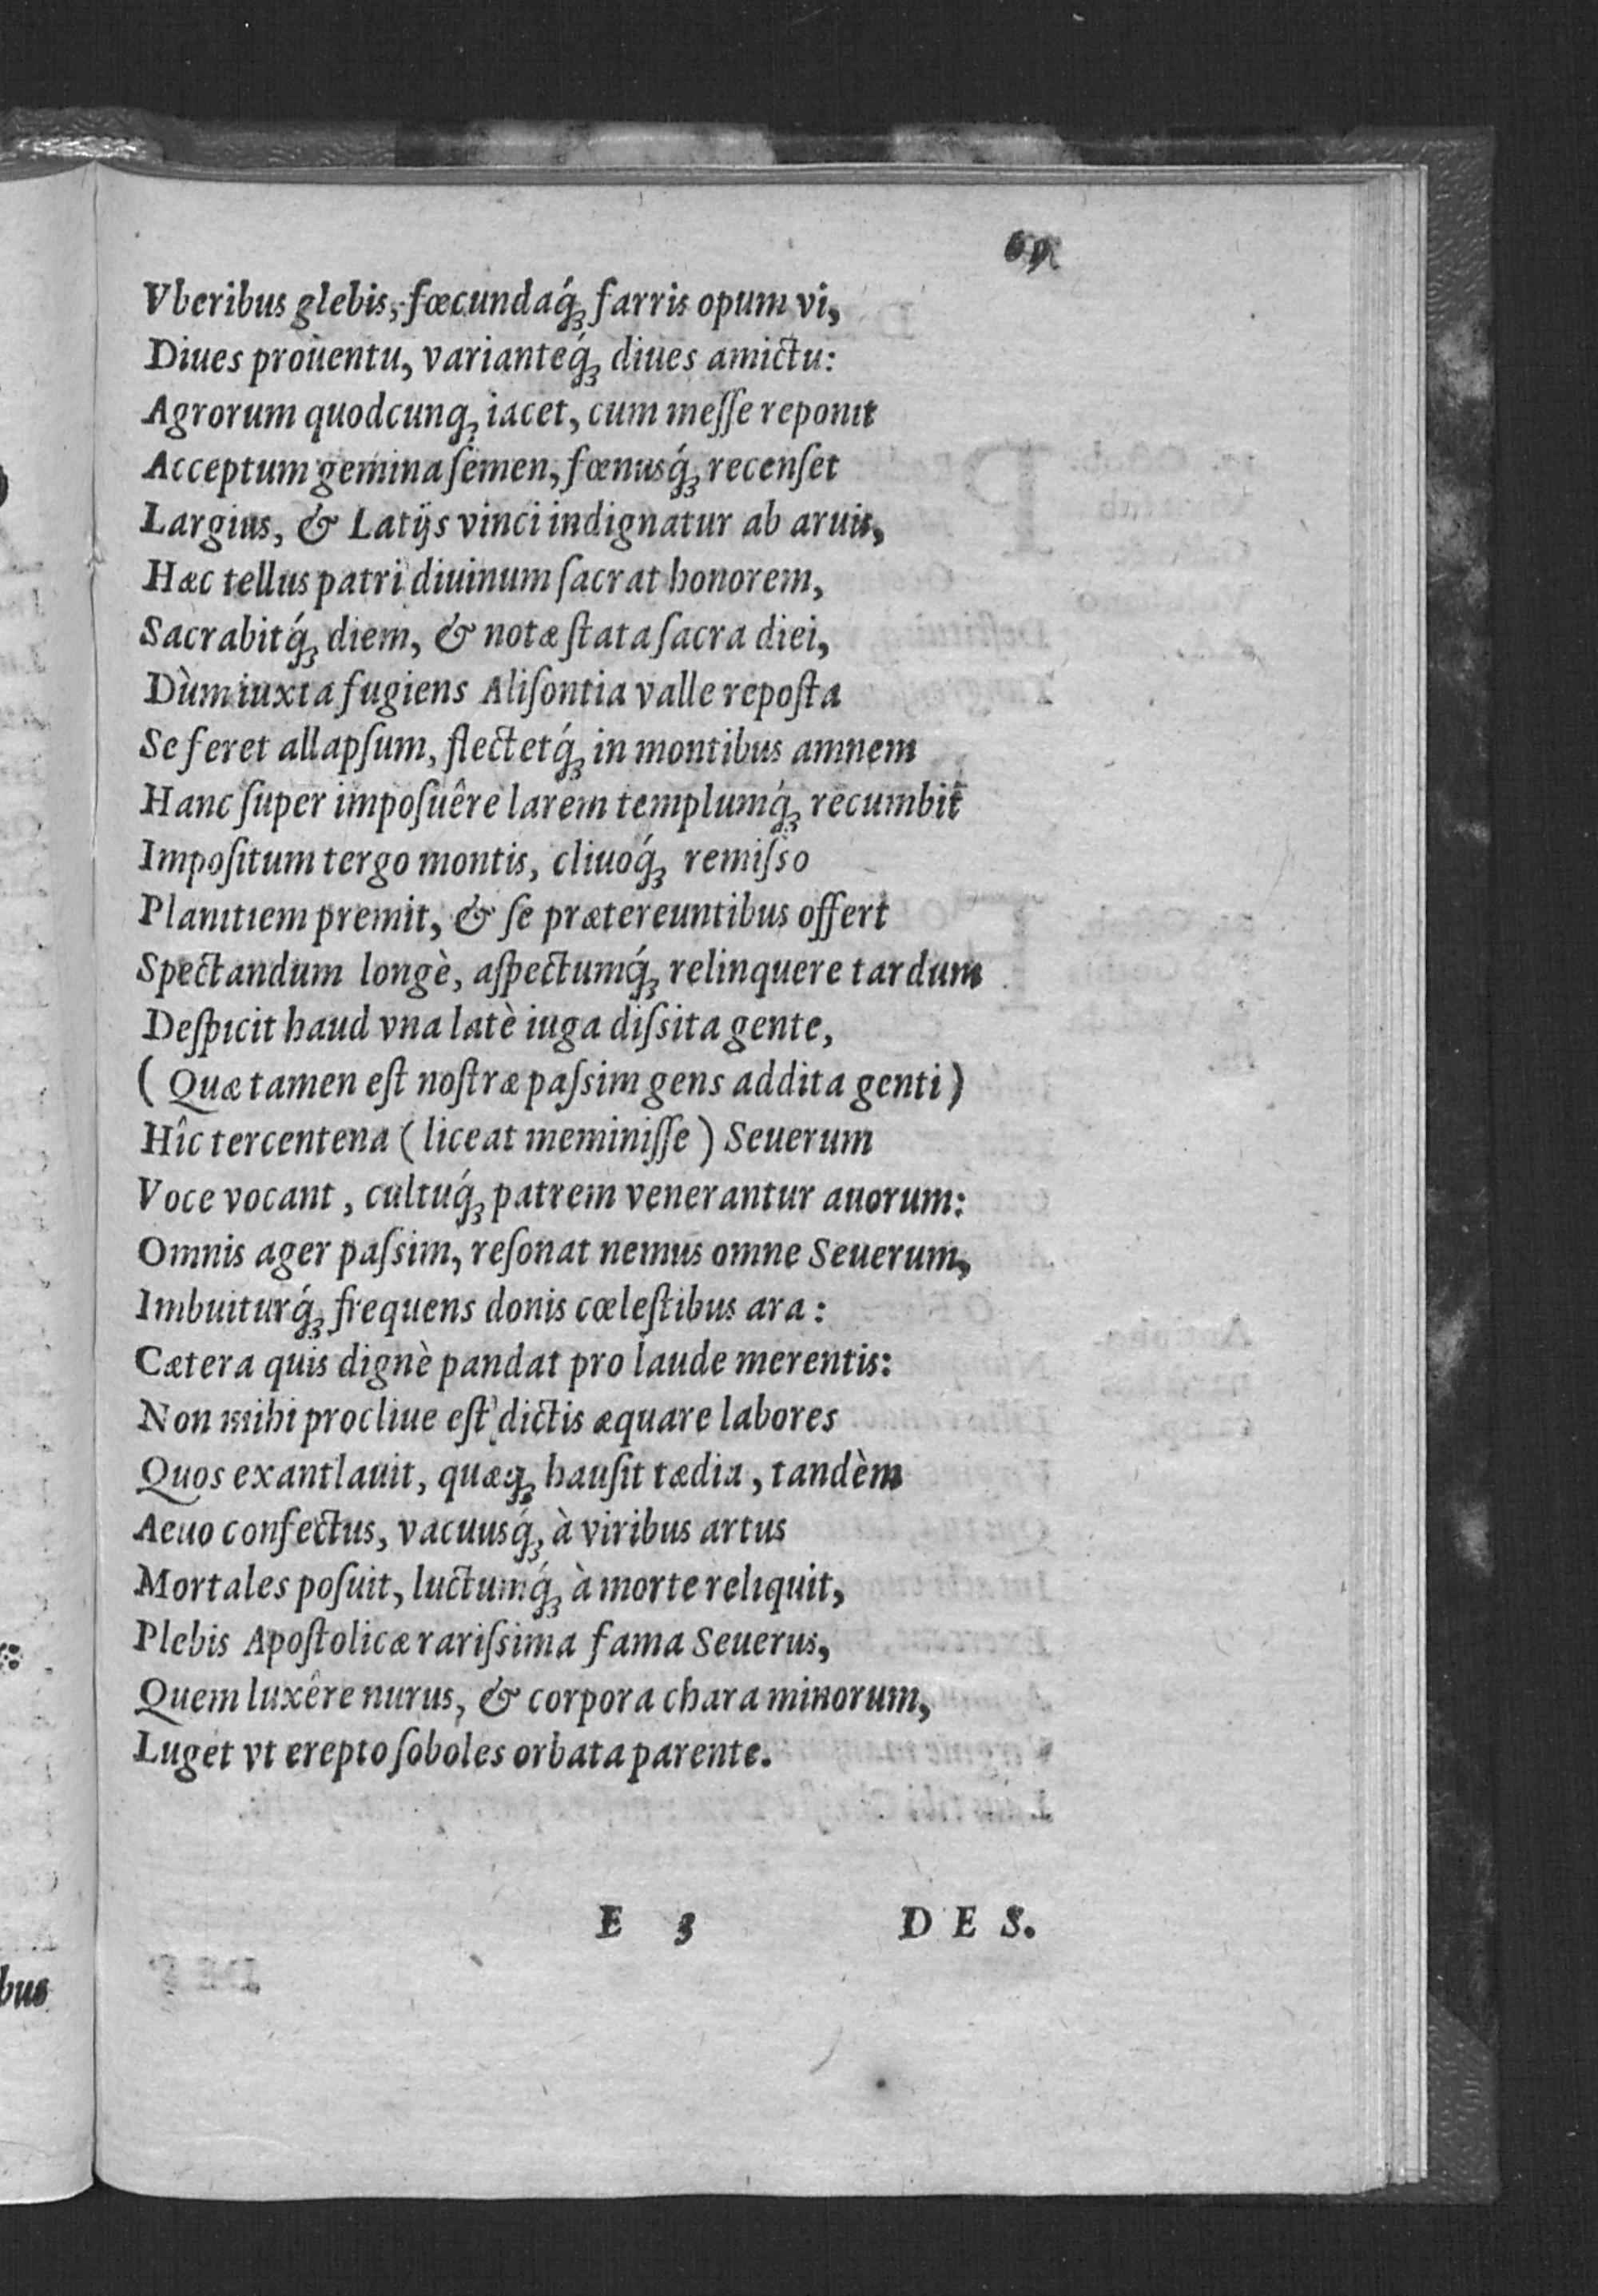 69
Vberibus glebis, fœcundaq́ꝫ farris opum vi,
Diues prouentu, varianteq́ꝫ diues amictu:
Agrorum quodcunqꝫ iacet, cum meſſe reponit
Acceptum gemina ſemen, fœnusq́ꝫ recenſet
Largius, & Latijs vinci indignatur ab aruis,
Hæc tellus patri diuinum ſacrat honorem,
Sacrabitq́ꝫ diem, & notæ ſtata ſacra diei,
Dùm iuxta fugiens Aliſontia valle repoſta
Se feret allapſum, flectetq́ꝫ in montibus amnem
Hanc ſuper impoſuêre larem templumq́ꝫ recumbit
Impoſitum tergo montis, cliuoq́ꝫ remiſso
Planitiem premit, & ſe prætereuntibus offert
Spectandum longè, aſpectumq́ꝫ relinquere tardum
Deſpicit haud vna latè iuga diſsita gente,
( Quæ tamen eſt noſtræ paſsim gens addita genti )
Hîc tercentena ( liceat meminiſſe ) Seuerum
Voce vocant, cultuq́ꝫ patrem venerantur auorum:
Omnis ager paſsim, reſonat nemus omne Seuerum,
Imbuiturq́ꝫ frequens donis cœleſtibus ara:
Cætera quis dignè pandat pro laude merentis:
Non mihi procliue eſt dictis æquare labores
Quos exantlauit, quæqꝫ hauſit tædia, tandèm
Aeuo confectus, vacuusq́ꝫ à viribus artus
Mortales poſuit, luctumq́ꝫ à morte reliquit,
Plebis Apoſtolicæ rariſsima fama Seuerus,
Quem luxêre nurus, & corpora chara minorum,
Luget vt erepto ſoboles orbata parente.
E 3 DES.
bus